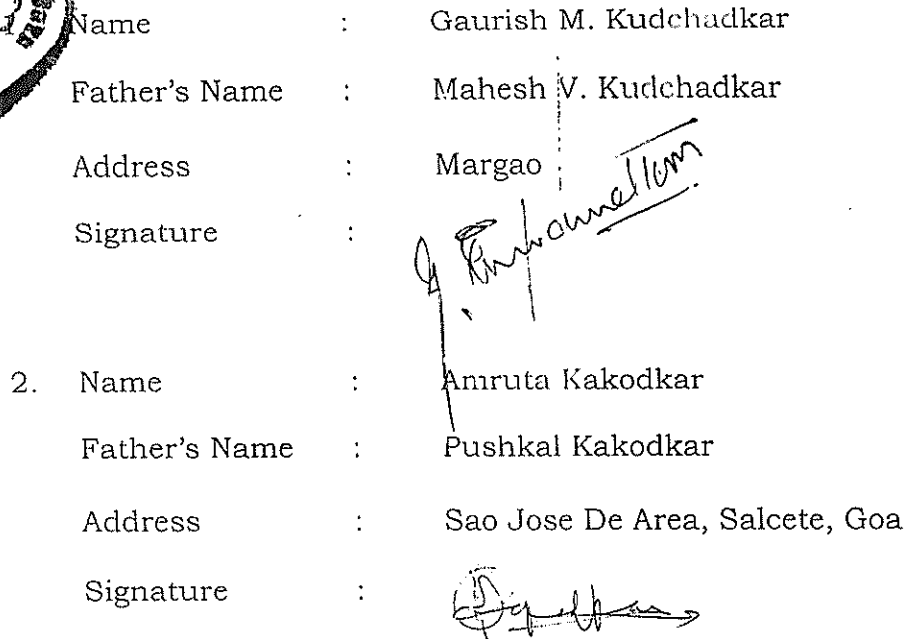 1. Name : Gaurish M. Kudchadkar
Father's Name : Mahesh V. Kudchadkar
Address : Margao
Signature :
2. Name : Amruta Kakodkar
Father's Name : Pushkal Kakodkar
Address : Sao Jose De Area, Salcete, Goa
Signature :